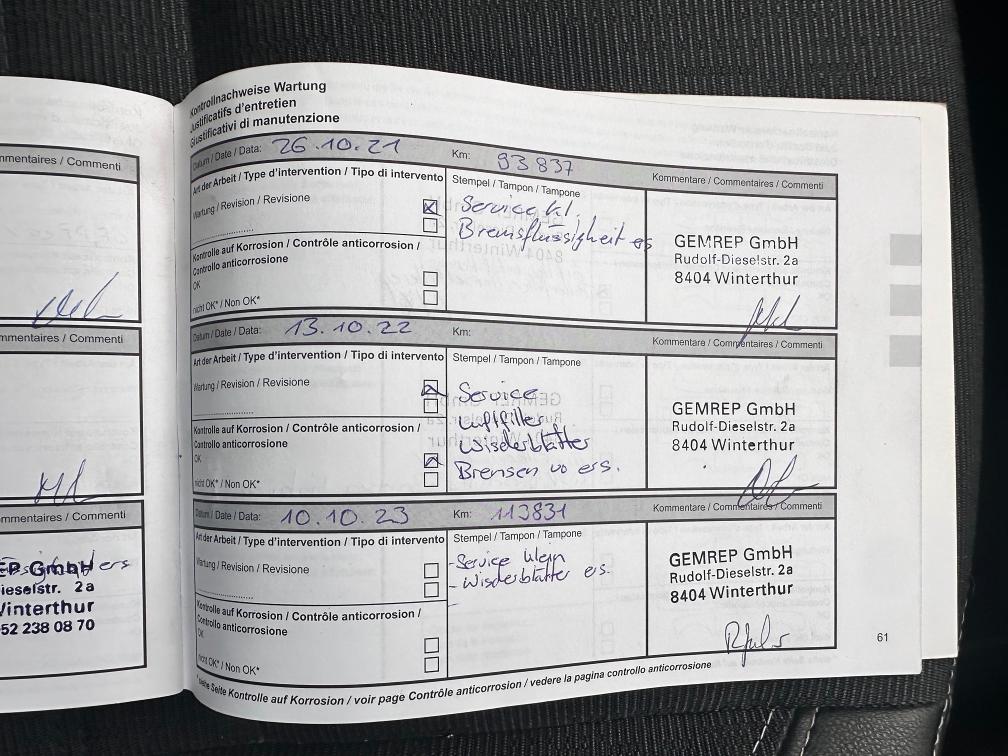 mmentaires / Commenti
mmentaires / Commenti
mmentaires / Commenti
EP GmbH ers
ieselstr. 2a
Winterthur
52 238 08 70
Kontrollnachweise Wartung
Justificatifs d'entretien
Giustificativi di manutenzione
Datum / Date / Data: 26.10.21 Km: 93837 Kommentare / Commentaires / Commenti
Art der Arbeit / Type d'intervention / Tipo di intervento
Stempel / Tampon / Tampone
Wartung / Revision / Revisione
Service kl.
Bremsflüssigkeit es
Kontrolle auf Korrosion / Contrôle anticorrosione /
Controllo anticorrosione
OK
nicht OK* / Non OK*
GEMREP GmbH
Rudolf-Dieselstr. 2a
8404 Winterthur
Datum / Date / Data: 13.10.22 Km: Kommentare / Commentaires / Commenti
Art der Arbeit / Type d'intervention / Tipo di intervento
Stempel / Tampon / Tampone
Wartung / Revision / Revisione
Service
Luftfilter
Wisderblätter
Bremsen vo ers.
Kontrolle auf Korrosion / Contrôle anticorrosione /
Controllo anticorrosione
OK
nicht OK* / Non OK*
GEMREP GmbH
Rudolf-Dieselstr. 2a
8404 Winterthur
Datum / Date / Data: 10.10.23 Km: 113831 Kommentare / Commentaires / Commenti
Art der Arbeit / Type d'intervention / Tipo di intervento
Stempel / Tampon / Tampone
Wartung / Revision / Revisione
- Service klein
- Wisderblätter ers.
-
Kontrolle auf Korrosion / Contrôle anticorrosione /
Controllo anticorrosione
OK
nicht OK* / Non OK*
GEMREP GmbH
Rudolf-Dieselstr. 2a
8404 Winterthur
* siehe Seite Kontrolle auf Korrosion / voir page Contrôle anticorrosione / vedere la pagina controllo anticorrosione
61